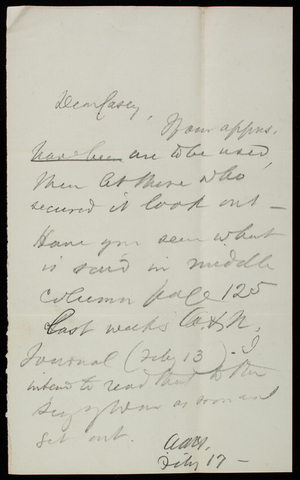 Dear Casey,
Your appns.
have been are to be used,
then let those who
secured it look out —
Have you seen what
is said in middle
column page 125
Last weeks A & N.
Journal (Feby 13). I
intend to read that to the
Secy of War as soon as I
get out.
Feby 17 —